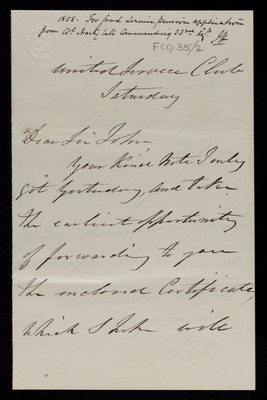 1858. For good Service pension application
from Col. late Commanding 33rd Regt.
FCO 35/2
United Service Club
Saturday
Dear Sir John
Your kind note I only
got yesterday, and take
the earliest opportunity
of forwarding to you
the inclosed Certificate,
which I will